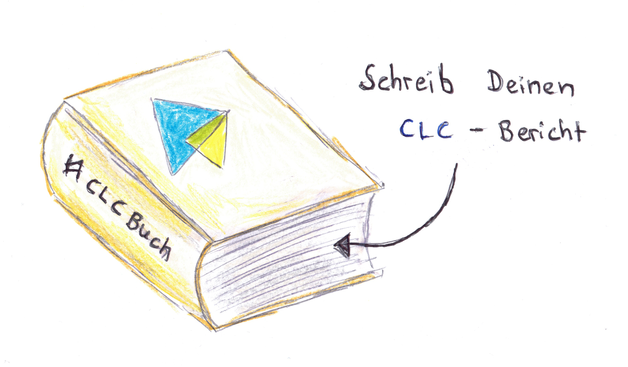 Schreib Deinen
CLC - Bericht
#CLCBuch